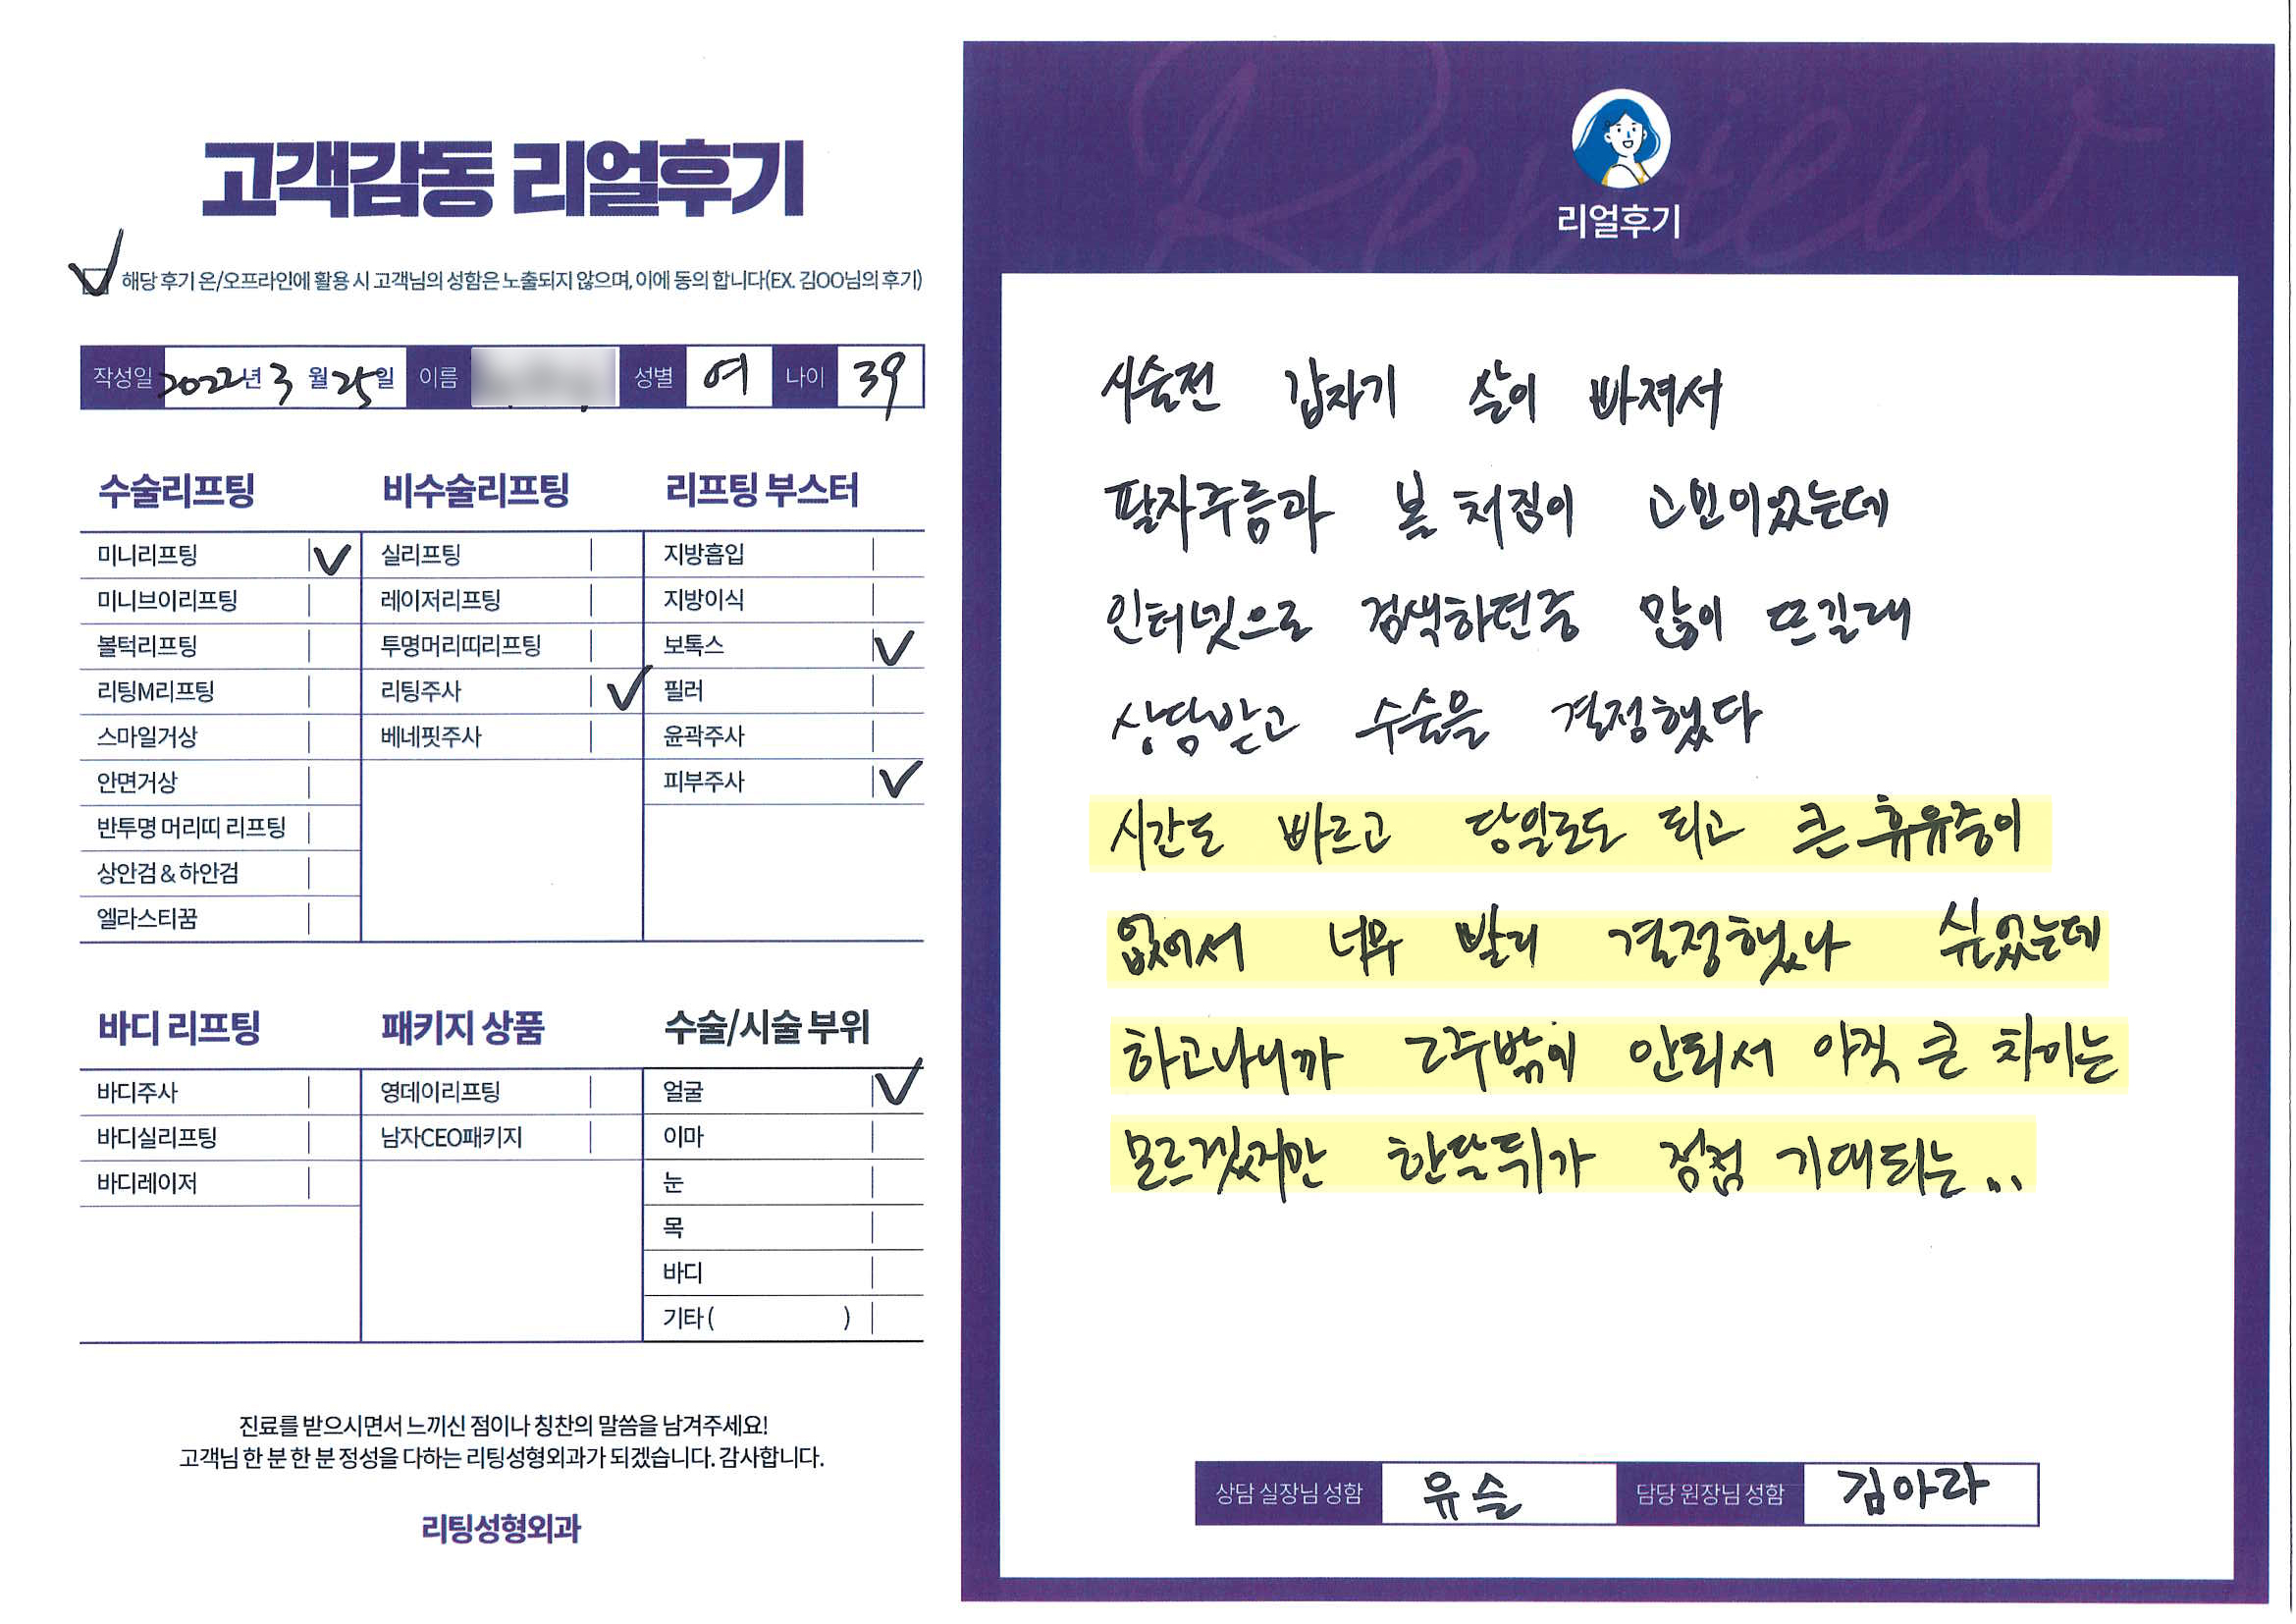 고객감동 리얼후기
해당 후기 온/오프라인에 활용 시 고객님의 성함은 노출되지 않으며, 이에 동의 합니다(EX. 김OO님의 후기)
작성일 2022년 3월 25일 이름 성별 여 나이 39
수술리프팅
미니리프팅
미니브이리프팅
볼턱리프팅
리팅M리프팅
스마일거상
안면거상
반투명 머리띠 리프팅
상안검 & 하안검
엘라스티꿈
비수술리프팅
실리프팅
레이저리프팅
투명머리띠리프팅
리팅주사
베네핏주사
리프팅 부스터
지방흡입
지방이식
보톡스
필러
윤곽주사
피부주사
바디 리프팅
바디주사
바디실리프팅
바디레이저
패키지 상품
영데이리프팅
남자CEO패키지
수술/시술 부위
얼굴
이마
눈
목
바디
기타 ( )
진료를 받으시면서 느끼신 점이나 칭찬의 말씀을 남겨주세요!
고객님 한 분 한 분 정성을 다하는 리팅성형외과가 되겠습니다. 감사합니다.
리팅성형외과
Review
리얼후기
시술전 갑자기 살이 빠져서
팔자주름과 볼 처짐이 고민이었는데
인터넷으로 검색하던중 많이 뜨길래
상담받고 수술을 결정했다
시간도 빠르고 당일로도 되고 큰 휴유증이
없어서 너무 빨리 결정했나 싶었는데
하고나니까 2주밖에 안되서 아직 큰 차이는
모르겠지만 한달뒤가 점점 기대되는...
상담 실장님 성함 유슬 담당 원장님 성함 김아라